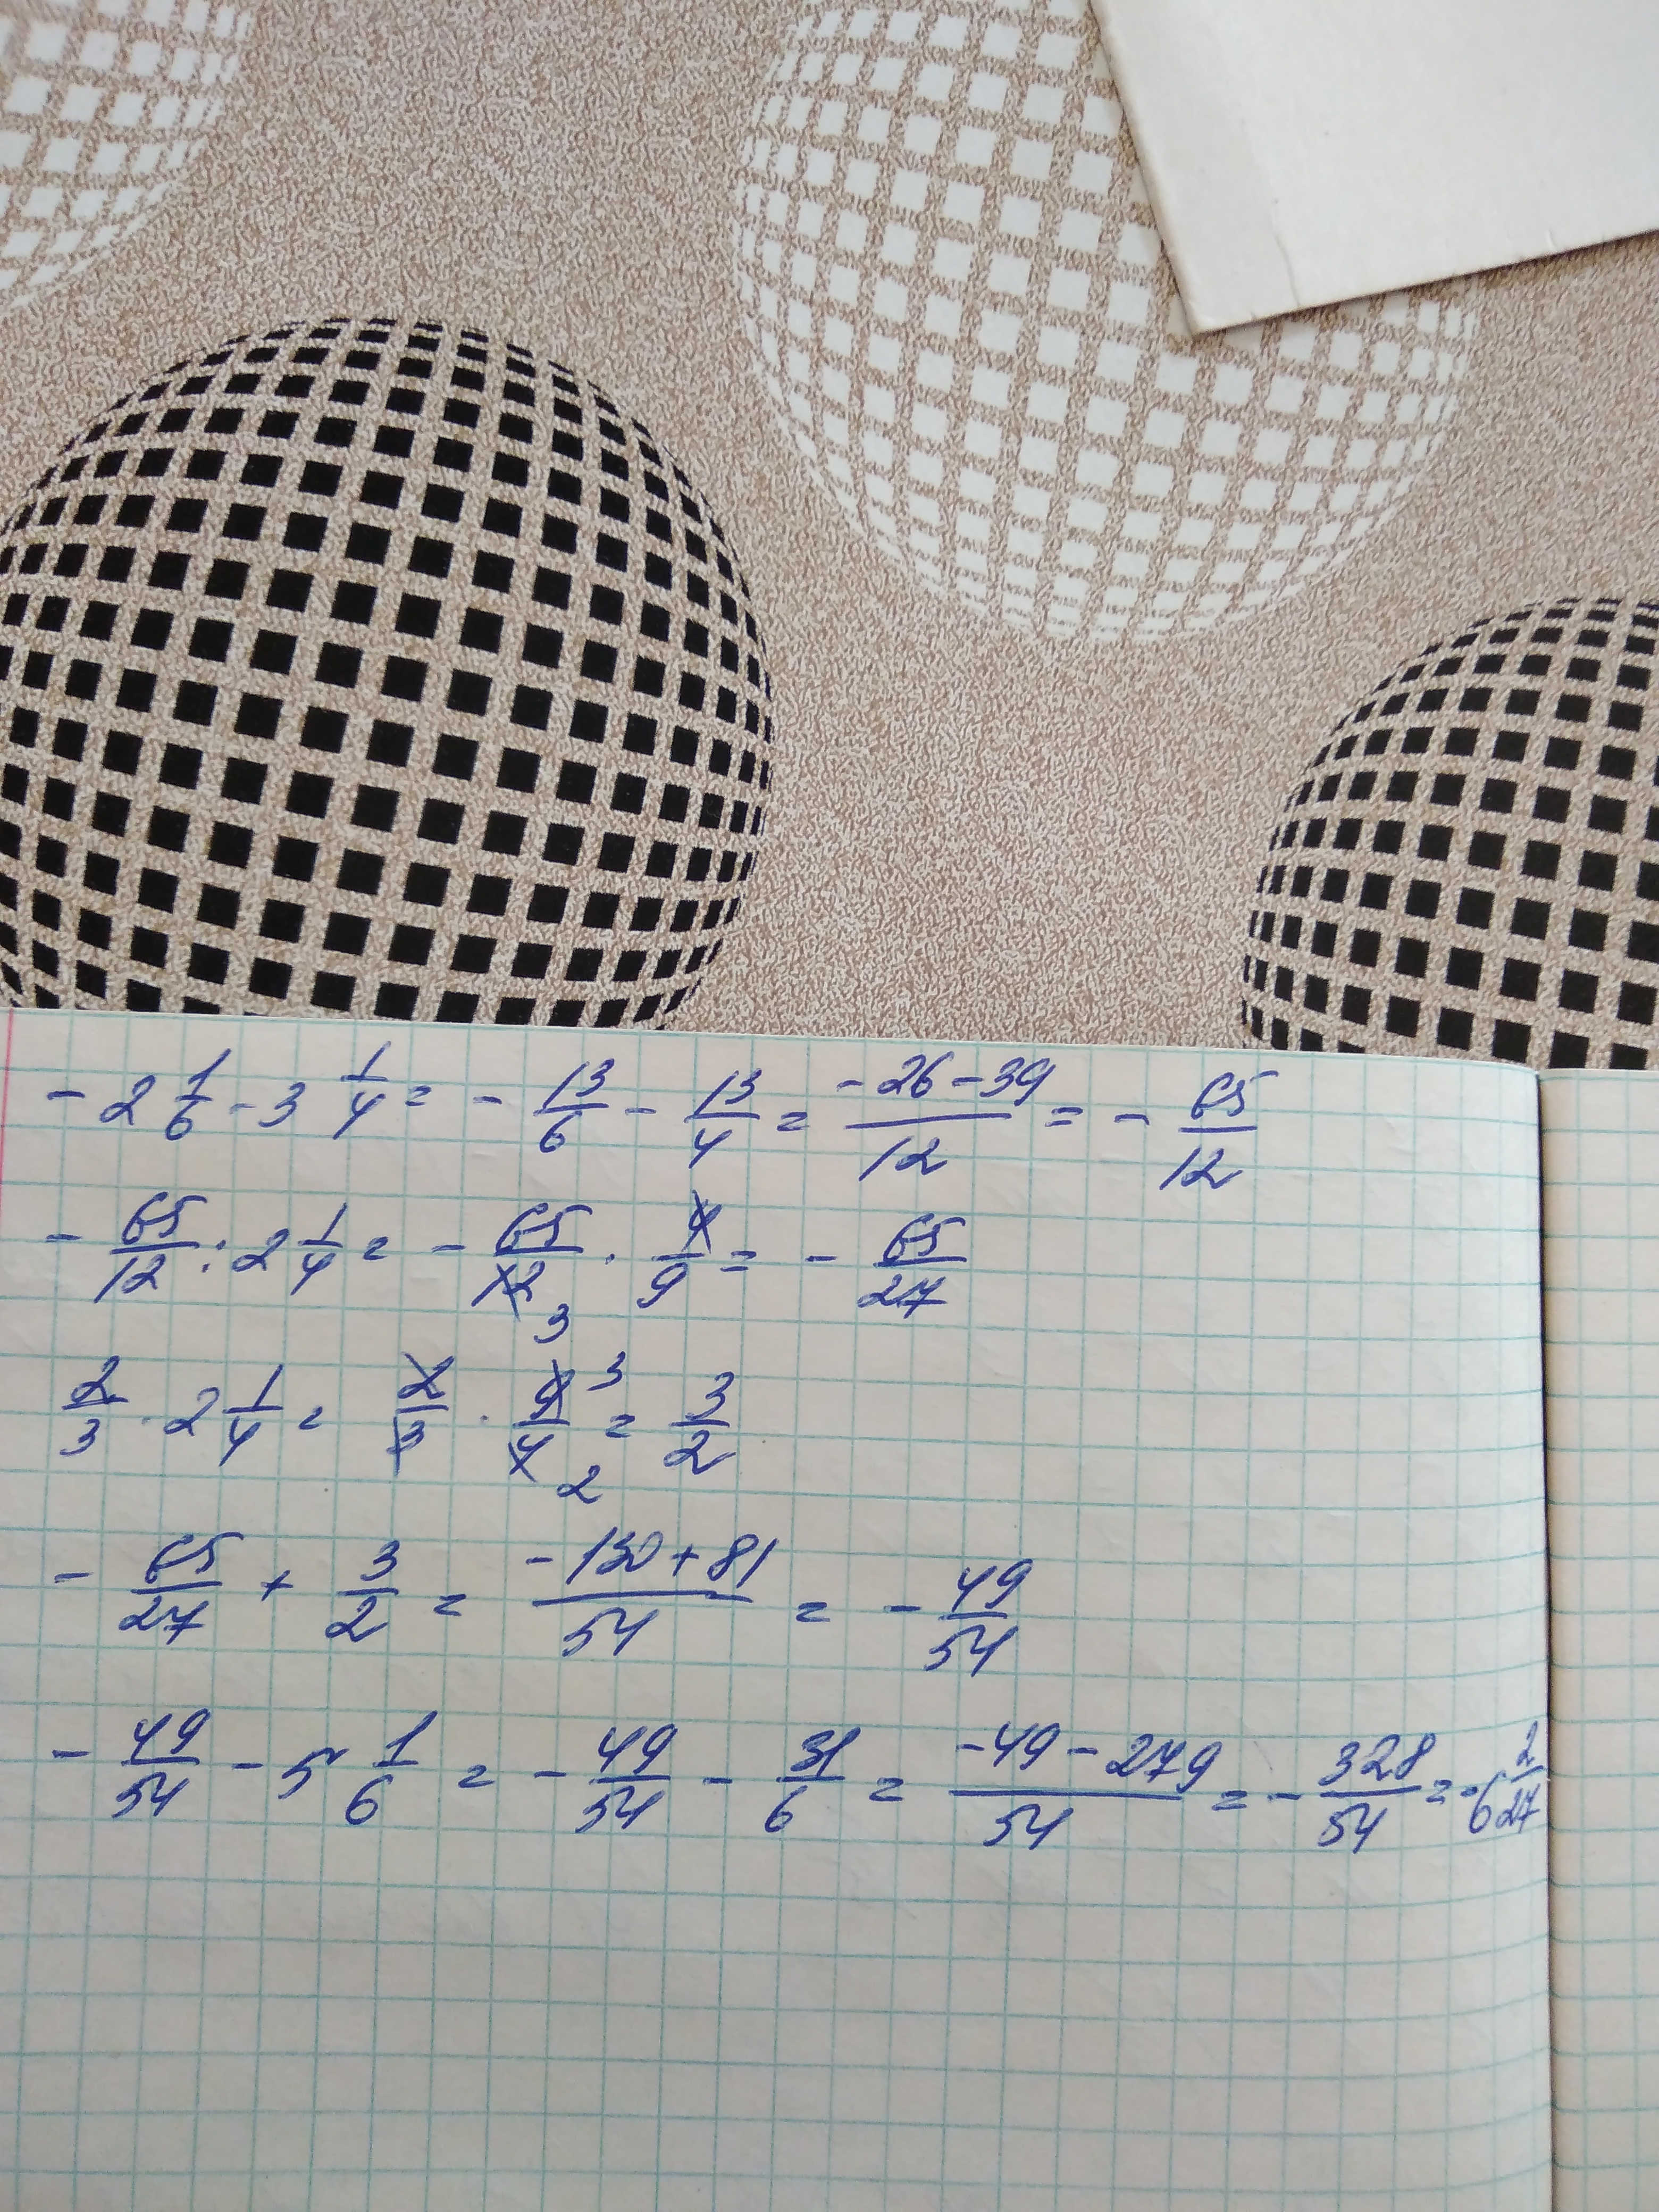 - 2 1/6 - 3 1/4 = - 13/6 - 13/4 = (-26-39)/12 = - 65/12
- 65/12 : 2 1/4 = - 65/12 3 · 4/9 = - 65/27
2/3 · 2 1/4 = 2/3 · 9 3/4 2 = 3/2
- 65/27 + 3/2 = (-130+81)/54 = - 49/54
- 49/54 - 5 1/6 = - 49/54 - 31/6 = (-49-279)/54 = - 328/54 = -6 2/27